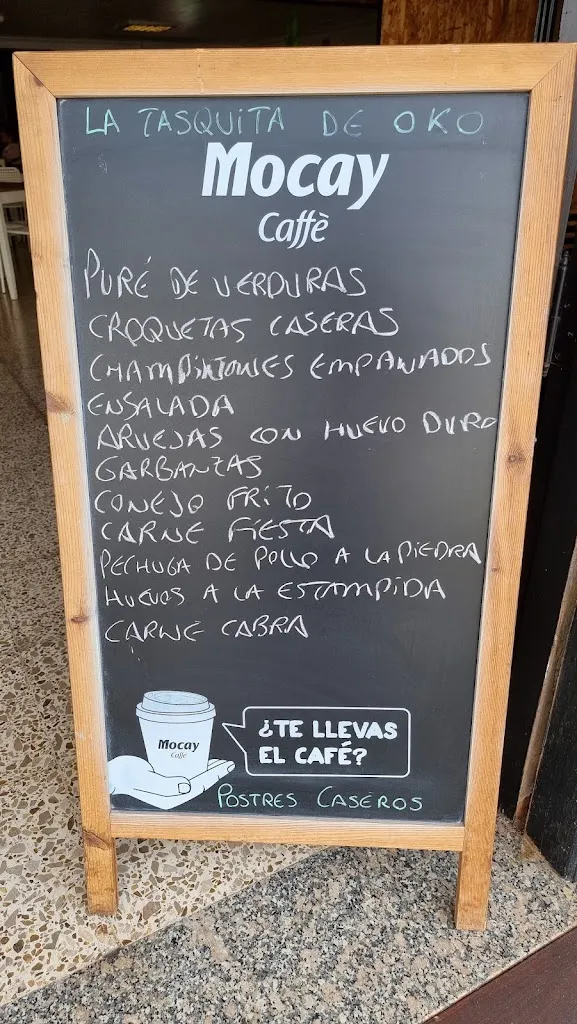 LA TASQUITA DE OKO
Mocay
Caffè
PURÉ DE VERDURAS
CROQUETAS CASERAS
CHAMPIÑONES EMPANADOS
ENSALADA
ARVEJAS CON HUEVO DURO
GARBANZAS
CONEJO FRITO
CARNE FIESTA
PECHUGA DE POLLO A LA PIEDRA
HUEVOS A LA ESTAMPIDA
CARNE CABRA
¿TE LLEVAS
EL CAFÉ?
Mocay
Caffè
POSTRES CASEROS